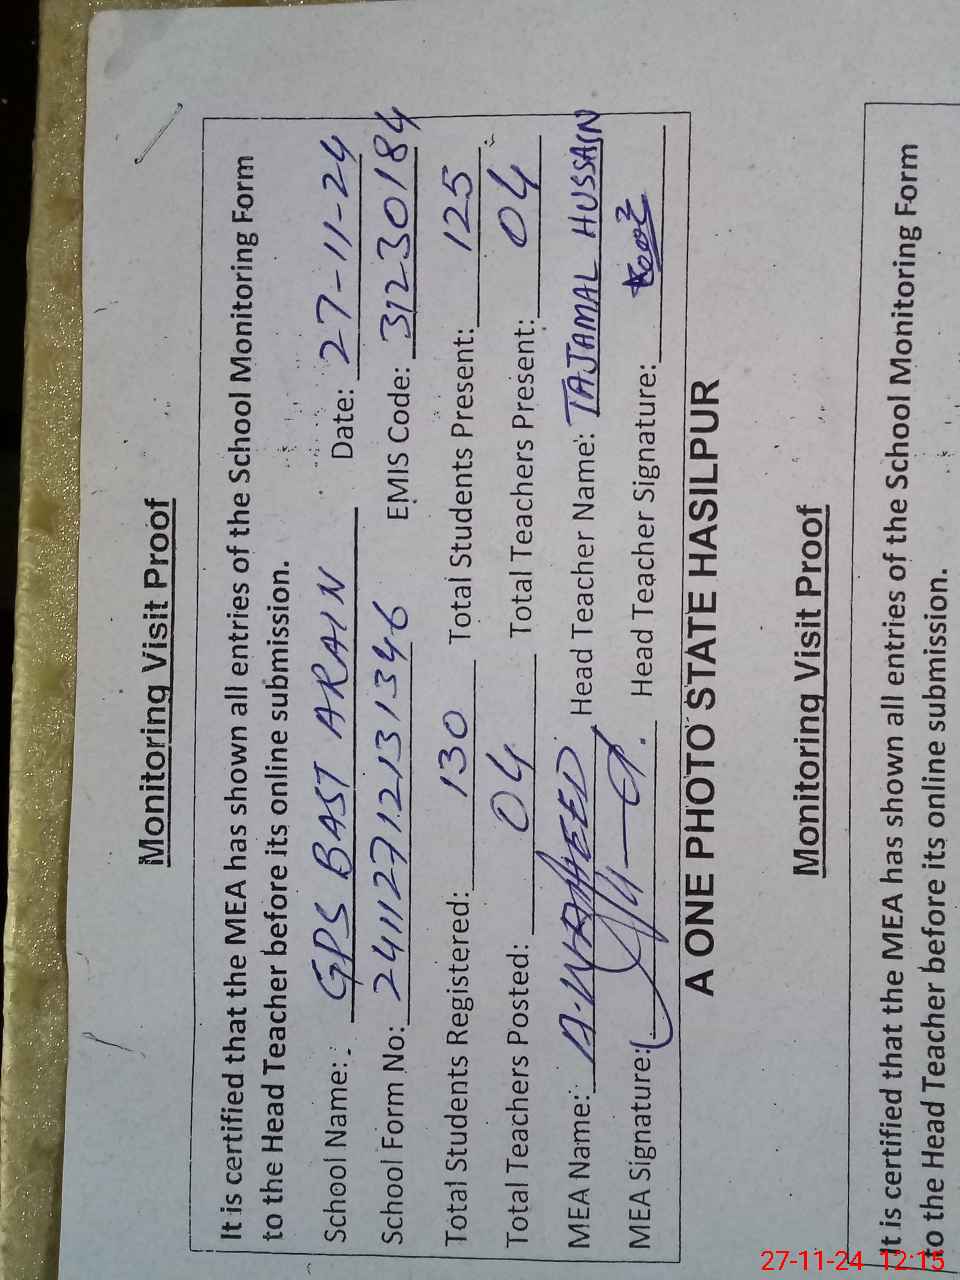 Monitoring Visit Proof
It is certified that the MEA has shown all entries of the School Monitoring Form
to the Head Teacher before its online submission.
School Name: GPS BAST ARAIN Date: 27-11-24
School Form No: 24112712131346 EMIS Code: 31230184
Total Students Registered: 130 Total Students Present: 125
Total Teachers Posted: 04 Total Teachers Present: 04
MEA Name: A. WAHEED Head Teacher Name: TAJAMAL HUSSAIN
MEA Signature: Head Teacher Signature:
A ONE PHOTO STATE HASILPUR
Monitoring Visit Proof
It is certified that the MEA has shown all entries of the School Monitoring Form
to the Head Teacher before its online submission.
27-11-24 12:15